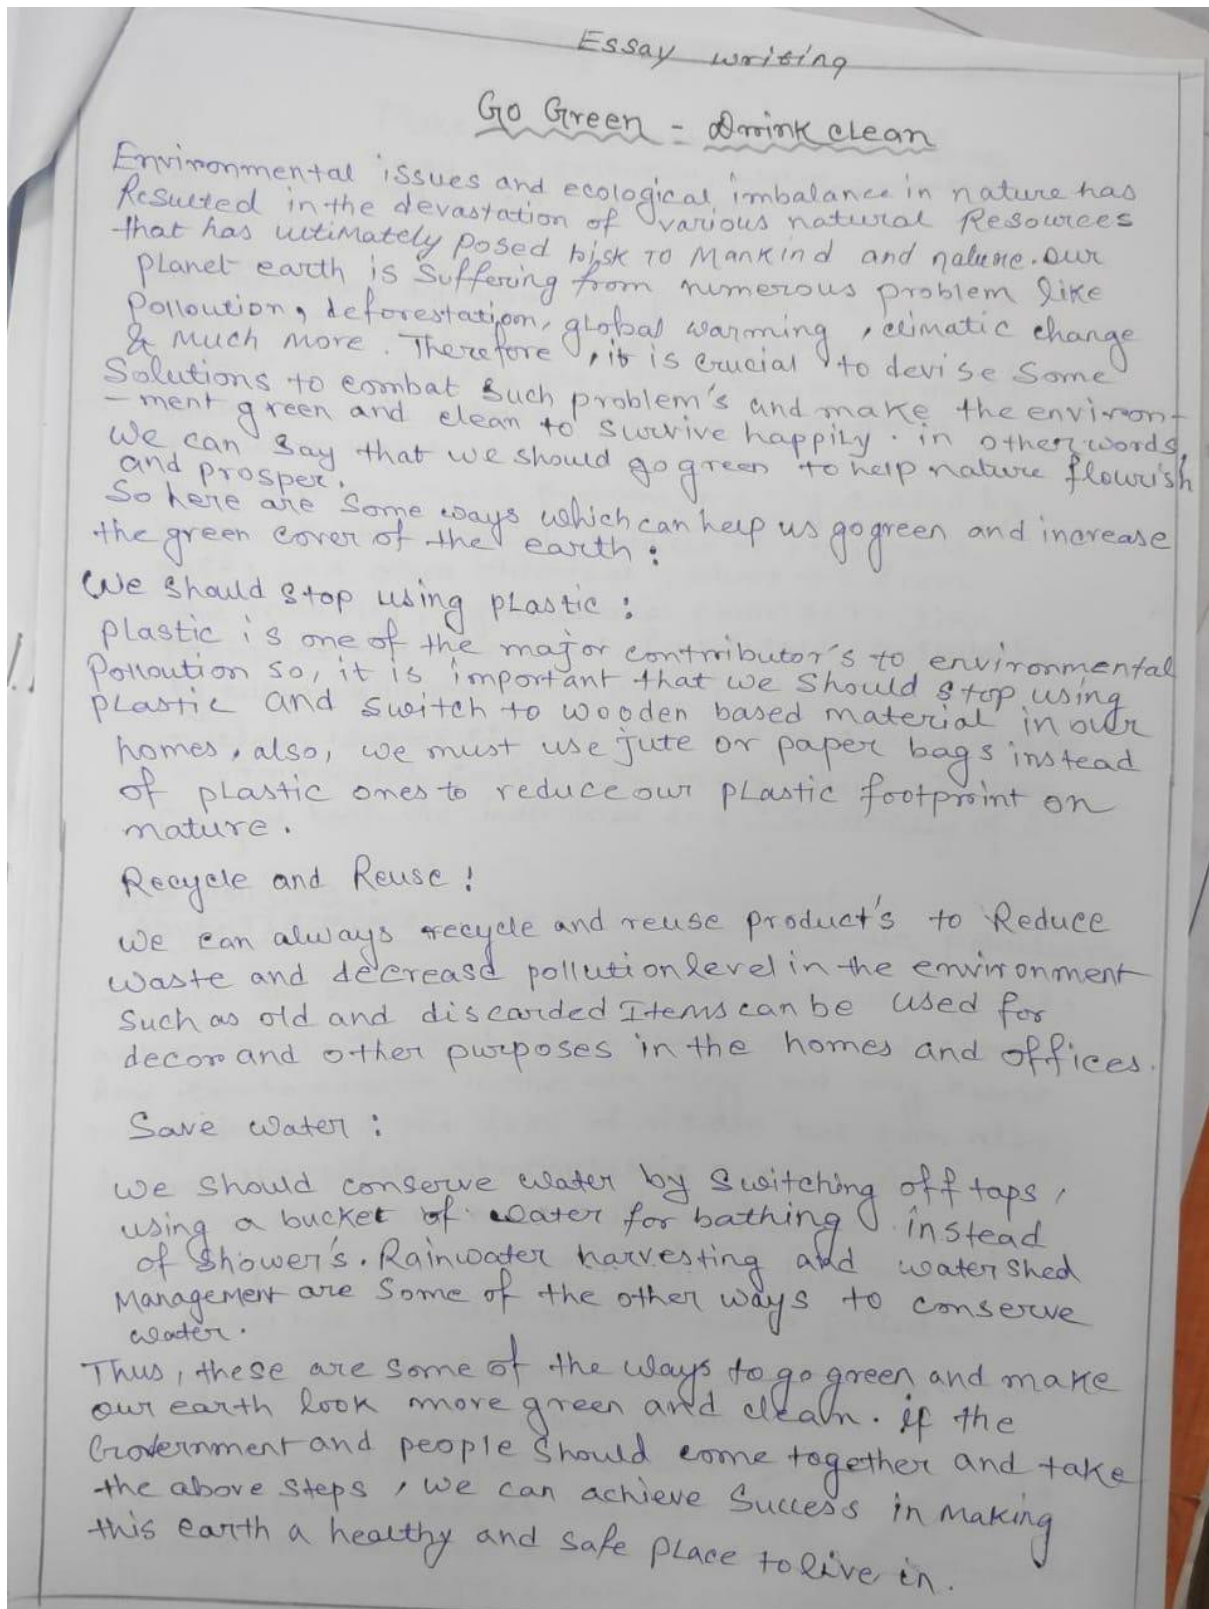 Essay writing
Go Green - Drink clean
Environmental issues and ecological imbalance in nature has
Resulted in the devastation of various natural Resources
that has ultimately posed risk To Mankind and nature. our
planet earth is Suffering from numerous problem like
Polloution, deforestation, global warming, climatic change
& Much more. Therefore, it is crucial to devise Some
Solutions to combat Such problem's and make the environ-
-ment green and clean to survive happily. in other words,
We can Say that we should go green to help nature flourish
and prosper.
So here are Some ways which can help us go green and increase
the green cover of the earth :
We Should Stop using plastic :
plastic is one of the major contributor's to environmental
Polloution so, it is important that we Should Stop using
plastic and switch to wooden based material in our
homes, also, we must use jute or paper bags instead
of plastic ones to reduce our plastic footprint on
nature.
Recycle and Reuse !
We can always recycle and reuse product's to Reduce
waste and decrease pollution level in the environment
Such as old and discarded Items can be used for
decor and other purposes in the homes and offices.
Save water :
We Should conserve water by Switching off taps,
using a bucket of water for bathing instead
of Shower's. Rainwater harvesting and water shed
Management are Some of the other ways to conserve
water.
Thus, these are some of the ways to go green and make
our earth look more green and clean. if the
Government and people Should come together and take
the above Steps, we can achieve Success in Making
this earth a healthy and safe place to live in.